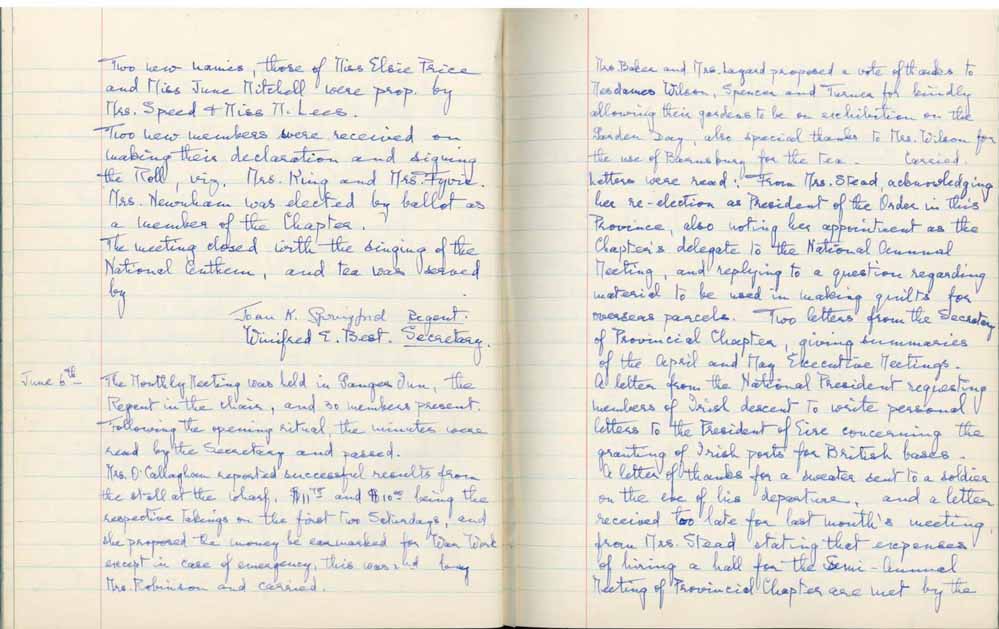 Two new names, those of Miss Elsie Price
and Miss June Mitchell were prop. by
Mrs. Speed & Miss M. Lees.
Two new members were received on
making their declaration and signing
the Roll, viz, Mrs. King and Mrs. Fyvie.
Mrs. Newnham was elected by ballot as
a member of the Chapter.
The meeting closed with the singing of the
National Anthem, and tea was served
by
Joan K. Springford Regent.
Winifred E. Best. Secretary.
June 6th - The Monthly Meeting was held in Ganges Inn, the
Regent in the chair, and 30 members present.
Following the opening ritual, the minutes were
read by the Secretary and passed.
Mrs. O'Callaghan reported successful results from
the stall at the wharf, and being the
respective takings on the first two Saturdays, and
she proposed the money be earmarked for War Work
except in case of emergency, this was 2nd by
Mrs. Robinson and carried.
Mrs. Baker and Mrs. Layard proposed a vote of thanks to
Mesdames Wilson, Spencer and Turner for kindly
allowing their gardens to be on exhibition on the
Garden Day, also special thanks to Mrs. Wilson for
the use of Barnsbury for the tea. Carried.
Letters were read: From Mrs. Stead, acknowledging
her re-election as President of the Order in this
Province, also noting her appointment as the
Chapter's delegate to the National Annual
Meeting, and replying to a question regarding
material to be used in making quilts for
overseas parcels. Two letters from the Secretary
of Provincial Chapter, giving summaries
of the April and May Executive Meetings.
A letter from the National President requesting
members of Irish descent to write personal
letters to the President of Eire concerning the
granting of Irish ports for British bases.
A letter of thanks for a sweater sent to a soldier
on the eve of his departure, and a letter
received too late for last month's meeting
from Mrs. Stead stating that expenses
of hiring a hall for the Semi-Annual
Meeting of Provincial Chapter are met by the